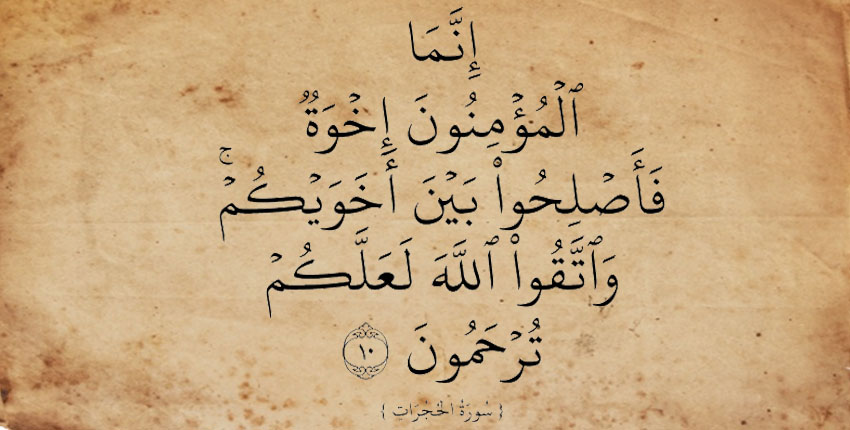 إِنَّمَا
ٱلْمُؤْمِنُونَ إِخْوَةٌ
فَأَصْلِحُوا۟ بَيْنَ أَخَوَيْكُمْ ۚ
وَٱتَّقُوا۟ ٱللَّهَ لَعَلَّكُمْ
تُرْحَمُونَ ١٠
{ سُورَةُ الحُجُرَاتِ }